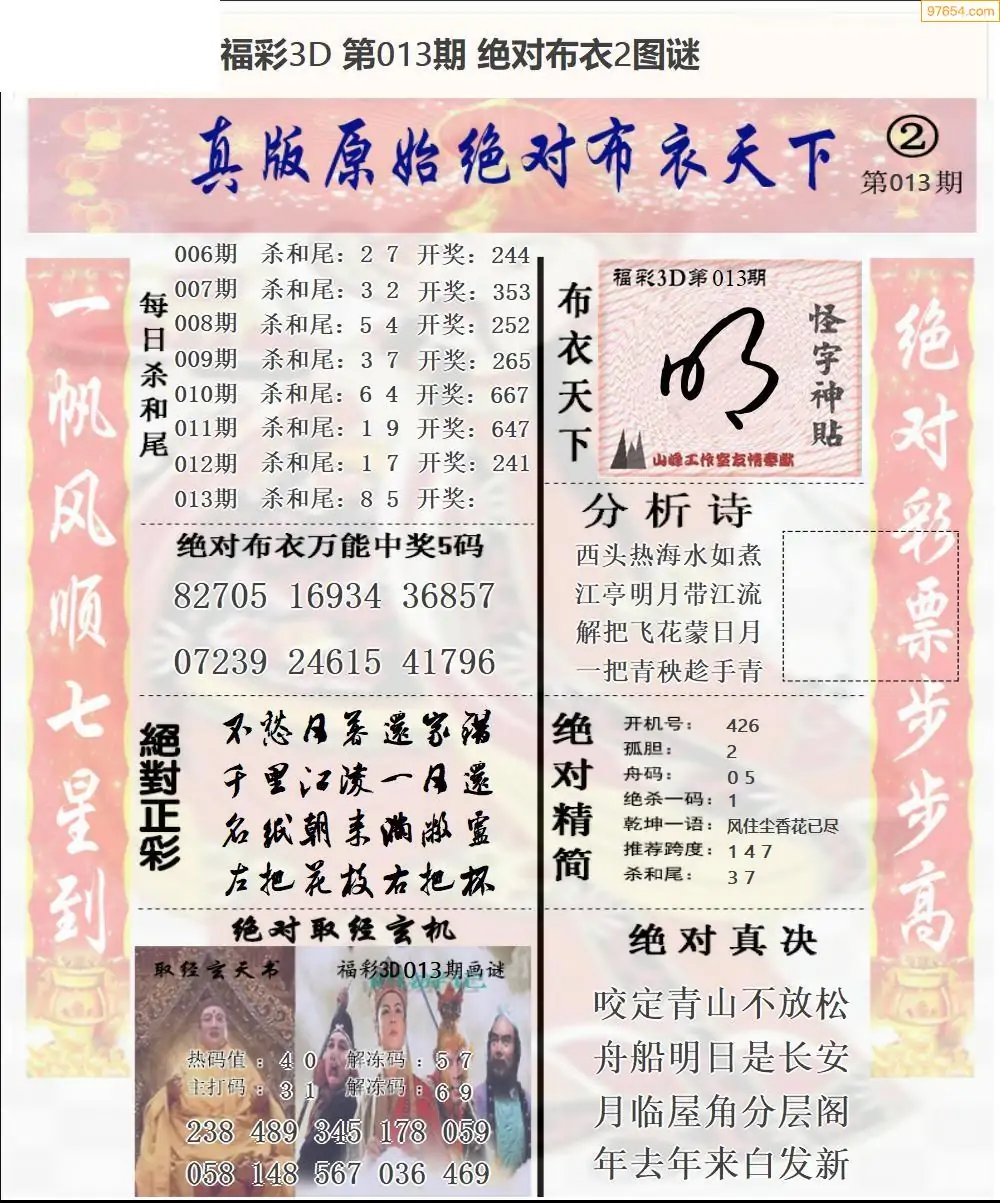 97654.com
福彩3D 第013期 绝对布衣2图谜
真版原始绝对布衣天下
②
第013期
一帆风顺七星到
每日杀和尾
006期 杀和尾：2 7 开奖：244
007期 杀和尾：3 2 开奖：353
008期 杀和尾：5 4 开奖：252
009期 杀和尾：3 7 开奖：265
010期 杀和尾：6 4 开奖：667
011期 杀和尾：1 9 开奖：647
012期 杀和尾：1 7 开奖：241
013期 杀和尾：8 5 开奖：
绝对布衣万能中奖5码
82705 16934 36857
07239 24615 41796
絕對正彩
不愁日暮還家錯
千里江陵一日還
名纸朝来满敝庐
左把花枝右把杯
绝对取经玄机
取经玄天书
福彩3D013期画谜
热码值：4 0 解冻码：5 7
主打码：3 1 解冻码：6 9
238 489 345 178 059
058 148 567 036 469
布衣天下
福彩3D第013期
明
怪字神貼
山峰工作室友情奉献
分析诗
西头热海水如煮
江亭明月带江流
解把飞花蒙日月
一把青秧趁手青
绝对精简
开机号： 426
孤胆： 2
舟码： 0 5
绝杀一码：1
乾坤一语：风住尘香花已尽
推荐跨度：1 4 7
杀和尾： 3 7
绝对真决
咬定青山不放松
舟船明日是长安
月临屋角分层阁
年去年来白发新
绝对彩票步步高